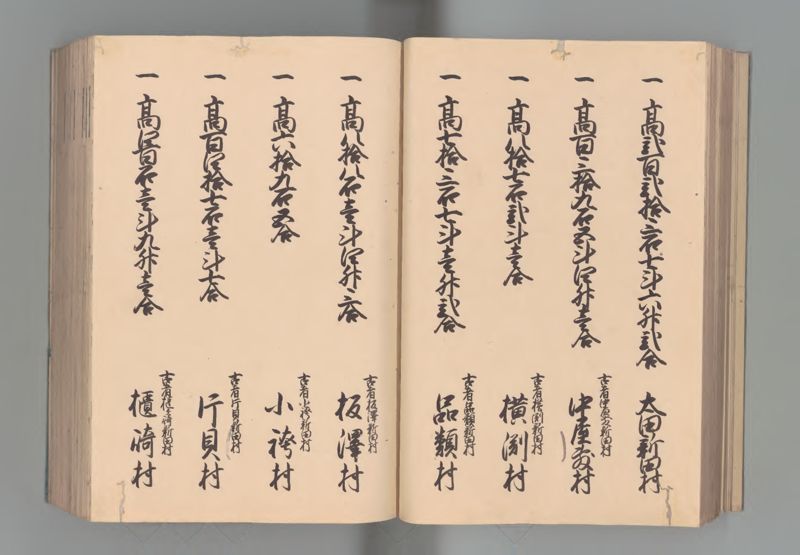 一 高弐百弐拾三石七斗六升弐合
大田新田村
一 高百三拾九石五斗四升壱合
古者中屋敷新田村
中屋敷村
一 高八拾七石弐斗壱合
古者横渕新田村
横渕村
一 高七拾三石七斗壱升弐合
古者品類新田村
品類村
一 高八拾八石壱斗四升三合
古者板澤新田村
板澤村
一 高六拾九石五合
古者小袴新田村
小袴村
一 高百四拾七石壱斗七合
古者片貝新田村
片貝村
一 高 百石壱斗九升壱合
古者櫃崎新田村
櫃崎村